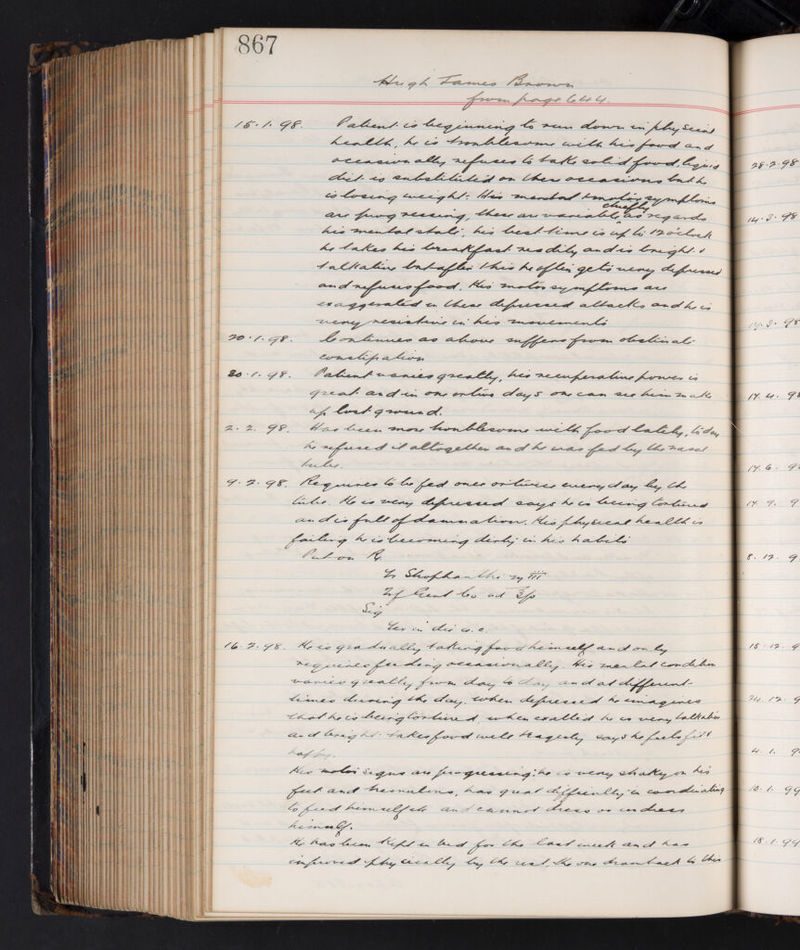 867
Hugh James Brown
from page 644.
15.1.98. Patient is beginning to run down in physical
health, he is troublesome with his food and
occasionally refuses to take solid food, liquid
diet is substituted on these occasions but he
is losing weight. His mental & motor symptoms
chiefly
are progressing, these are variable, as regards
his mental state, his best time is up to 12 o'clock
he takes his breakfast readily and is bright &
talkative but after this he often gets very depressed
and refuses food. His motor symptoms are
exaggerated in these depressed attacks and he is
very resistive in his movements
20.1.98. Continues as above suffers from obstinate
constipation
30.1.98. Patient varies greatly, his recuperative power is
great and in one or two days one can see him make
up lost ground.
2.2.98. Has been more troublesome with food lately, today
he refused it altogether and he was fed by the nasal
tube.
9.2.98. Requires to be fed once or twice every day by the
tube. He is very depressed says he is being tortured
and is full of damnation. His physical health is
failing he is becoming dirty in his habits
Put on Rx
Tr Strophanthi
Inf Gent Co ad
Sig
16.2.98. He is gradually taking food himself and only
requires feeding occasionally. His mental condition
varies greatly from day to day and at different
times during the day. When depressed he imagines
that he is being tortured, when exalted he is very talkative
and bright. takes food well & says he feels fit &
happy.
His motor signs are progressing: he is very shaky on his
feet and tremulous, has great difficulty in coordinating
to feed himself etc and cannot dress or undress
himself.
He has been kept in bed for the last week and has
improved physically by the rest, the one drawback to this
28.2.98
14.3.98
3.98
17.4.98
17.6.9
17.9.9
8.12.9
15.12.9
24.12.9
4.1.9
12.1.99
18.1.99